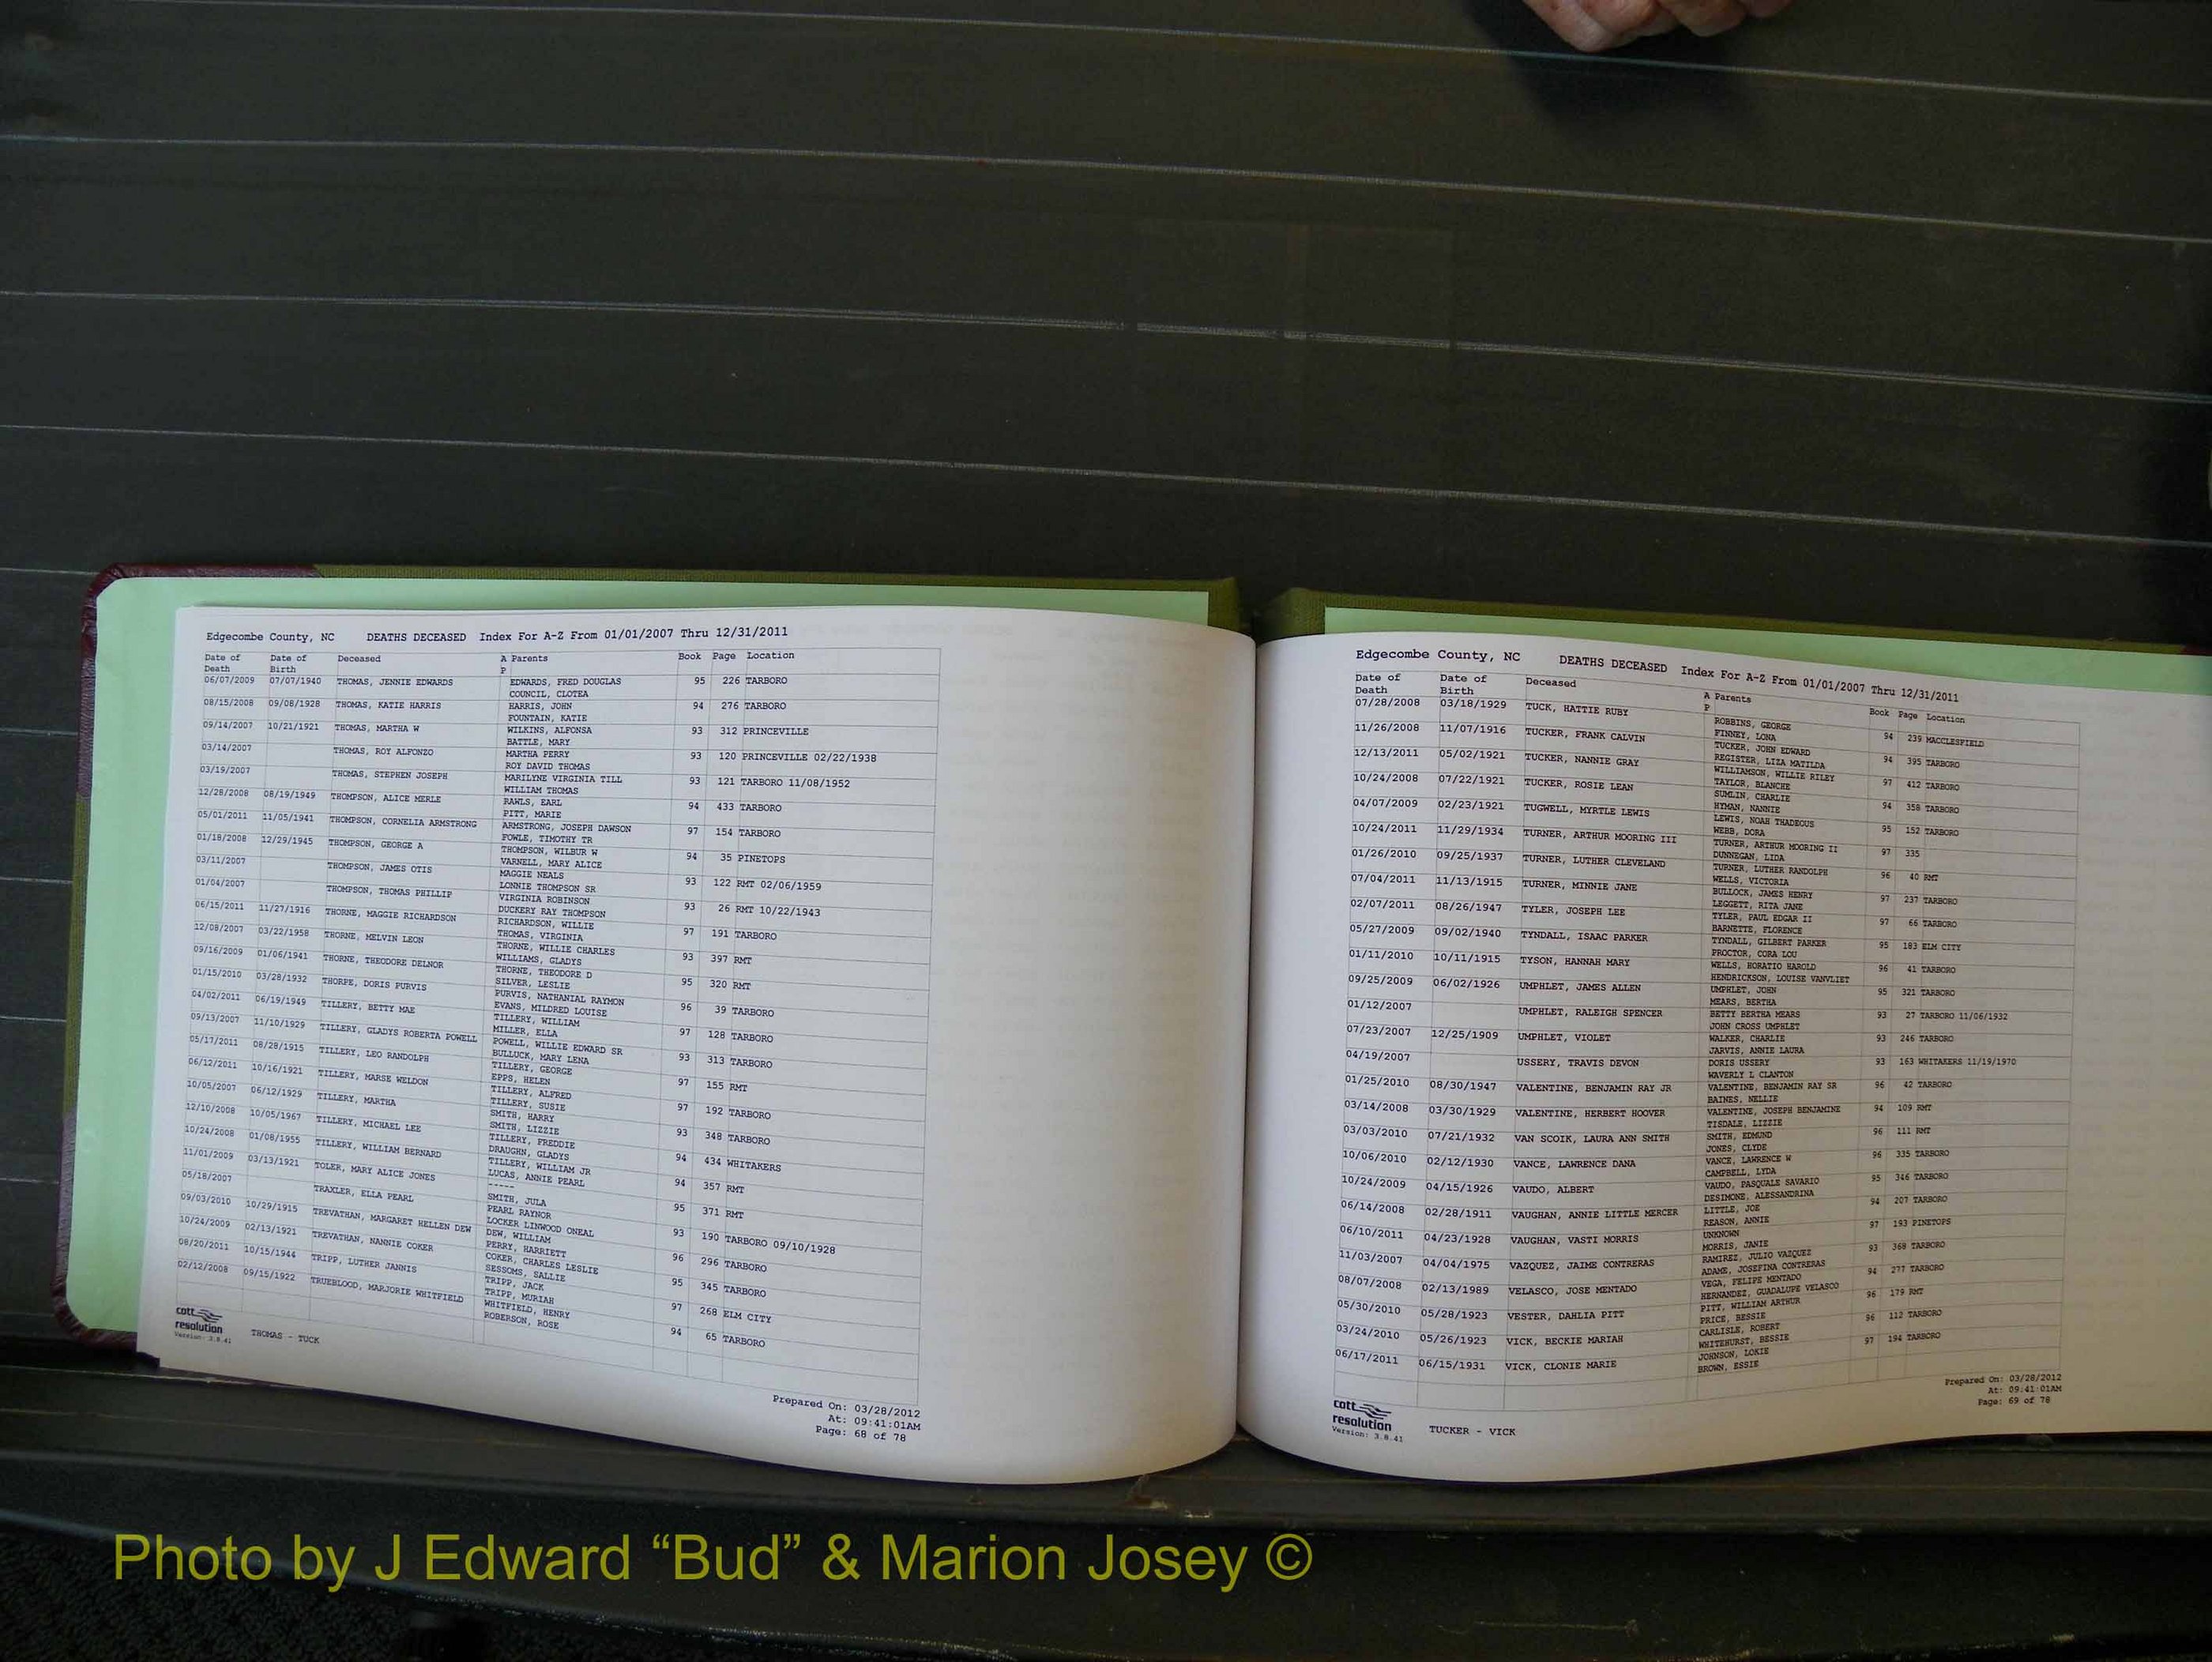 Edgecombe County, NC DEATHS DECEASED Index For A-Z From 01/01/2007 Thru 12/31/2011
Date of Death Date of Birth Deceased A P Parents Book Page Location
06/07/2009 07/07/1940 THOMAS, JENNIE EDWARDS EDWARDS, FRED DOUGLAS 95 226 TARBORO
COUNCIL, CLOTEA
08/15/2008 09/08/1928 THOMAS, KATIE HARRIS HARRIS, JOHN 94 276 TARBORO
FOUNTAIN, KATIE
09/14/2007 10/21/1921 THOMAS, MARTHA W WILKINS, ALFONSA 93 312 PRINCEVILLE
BATTLE, MARY
03/14/2007 THOMAS, ROY ALFONZO MARTHA PERRY 93 120 PRINCEVILLE 02/22/1938
ROY DAVID THOMAS
03/19/2007 THOMAS, STEPHEN JOSEPH MARILYNE VIRGINIA TILL 93 121 TARBORO 11/08/1952
WILLIAM THOMAS
12/28/2008 08/19/1949 THOMPSON, ALICE MERLE RAWLS, EARL 94 433 TARBORO
PITT, MARIE
05/01/2011 11/05/1941 THOMPSON, CORNELIA ARMSTRONG ARMSTRONG, JOSEPH DAWSON 97 154 TARBORO
FOWLE, TIMOTHY TR
01/18/2008 12/29/1945 THOMPSON, GEORGE A THOMPSON, WILBUR W 94 35 PINETOPS
VARNELL, MARY ALICE
03/11/2007 THOMPSON, JAMES OTIS MAGGIE NEALS 93 122 RMT 02/06/1959
LONNIE THOMPSON SR
01/04/2007 THOMPSON, THOMAS PHILLIP VIRGINIA ROBINSON 93 26 RMT 10/22/1943
DUCKERY RAY THOMPSON
06/15/2011 11/27/1916 THORNE, MAGGIE RICHARDSON RICHARDSON, WILLIE 97 191 TARBORO
THOMAS, VIRGINIA
12/08/2007 03/22/1958 THORNE, MELVIN LEON THORNE, WILLIE CHARLES 93 397 RMT
WILLIAMS, GLADYS
09/16/2009 01/06/1941 THORNE, THEODORE DELNOR THORNE, THEODORE D 95 320 RMT
SILVER, LESLIE
01/15/2010 03/28/1932 THORPE, DORIS PURVIS PURVIS, NATHANIAL RAYMON 96 39 TARBORO
EVANS, MILDRED LOUISE
04/02/2011 06/19/1949 TILLERY, BETTY MAE TILLERY, WILLIAM 97 128 TARBORO
MILLER, ELLA
09/13/2007 11/10/1929 TILLERY, GLADYS ROBERTA POWELL POWELL, WILLIE EDWARD SR 93 313 TARBORO
BULLUCK, MARY LENA
05/17/2011 08/28/1915 TILLERY, LEO RANDOLPH TILLERY, GEORGE 97 155 RMT
EPPS, HELEN
06/12/2011 10/16/1921 TILLERY, MARSE WELDON TILLERY, ALFRED 97 192 TARBORO
TILLERY, SUSIE
10/05/2007 06/12/1929 TILLERY, MARTHA SMITH, HARRY 93 348 TARBORO
SMITH, LIZZIE
12/10/2008 10/05/1967 TILLERY, MICHAEL LEE TILLERY, FREDDIE 94 434 WHITAKERS
DRAUGHN, GLADYS
10/24/2008 01/08/1955 TILLERY, WILLIAM BERNARD TILLERY, WILLIAM JR 94 357 RMT
LUCAS, ANNIE PEARL
11/01/2009 03/13/1921 TOLER, MARY ALICE JONES ----- 95 371 RMT
SMITH, JULA
05/18/2007 TRAXLER, ELLA PEARL PEARL RAYNOR 93 190 TARBORO 09/10/1928
LOCKER LINWOOD ONEAL
09/03/2010 10/29/1915 TREVATHAN, MARGARET HELLEN DEW DEW, WILLIAM 96 296 TARBORO
PERRY, HARRIETT
10/24/2009 02/13/1921 TREVATHAN, NANNIE COKER COKER, CHARLES LESLIE 95 345 TARBORO
SESSOMS, SALLIE
08/20/2011 10/15/1944 TRIPP, LUTHER JANNIS TRIPP, JACK 97 268 ELM CITY
TRIPP, MURIAH
02/12/2008 09/15/1922 TRUEBLOOD, MARJORIE WHITFIELD WHITFIELD, HENRY 94 65 TARBORO
ROBERSON, ROSE
cott
resolution
Version: 3.8.41
THOMAS - TUCK
Prepared On: 03/28/2012
At: 09:41:01AM
Page: 68 of 78
Edgecombe County, NC DEATHS DECEASED Index For A-Z From 01/01/2007 Thru 12/31/2011
Date of Death Date of Birth Deceased A P Parents Book Page Location
07/28/2008 03/18/1929 TUCK, HATTIE RUBY ROBBINS, GEORGE 94 239 MACCLESFIELD
FINNEY, LONA
11/26/2008 11/07/1916 TUCKER, FRANK CALVIN TUCKER, JOHN EDWARD 94 395 TARBORO
REGISTER, LIZA MATILDA
12/13/2011 05/02/1921 TUCKER, NANNIE GRAY WILLIAMSON, WILLIE RILEY 97 412 TARBORO
TAYLOR, BLANCHE
10/24/2008 07/22/1921 TUCKER, ROSIE LEAN SUMLIN, CHARLIE 94 358 TARBORO
HYMAN, NANNIE
04/07/2009 02/23/1921 TUGWELL, MYRTLE LEWIS LEWIS, NOAH THADEOUS 95 152 TARBORO
WEBB, DORA
10/24/2011 11/29/1934 TURNER, ARTHUR MOORING III TURNER, ARTHUR MOORING II 97 335
DUNNEGAN, LIDA
01/26/2010 09/25/1937 TURNER, LUTHER CLEVELAND TURNER, LUTHER RANDOLPH 96 40 RMT
WELLS, VICTORIA
07/04/2011 11/13/1915 TURNER, MINNIE JANE BULLOCK, JAMES HENRY 97 237 TARBORO
LEGGETT, RITA JANE
02/07/2011 08/26/1947 TYLER, JOSEPH LEE TYLER, PAUL EDGAR II 97 66 TARBORO
BARNETTE, FLORENCE
05/27/2009 09/02/1940 TYNDALL, ISAAC PARKER TYNDALL, GILBERT PARKER 95 183 ELM CITY
PROCTOR, CORA LOU
01/11/2010 10/11/1915 TYSON, HANNAH MARY WELLS, HORATIO HAROLD 96 41 TARBORO
HENDRICKSON, LOUISE VANVLIET
09/25/2009 06/02/1926 UMPHLET, JAMES ALLEN UMPHLET, JOHN 95 321 TARBORO
MEARS, BERTHA
01/12/2007 UMPHLET, RALEIGH SPENCER BETTY BERTHA MEARS 93 27 TARBORO 11/06/1932
JOHN CROSS UMPHLET
07/23/2007 12/25/1909 UMPHLET, VIOLET WALKER, CHARLIE 93 246 TARBORO
JARVIS, ANNIE LAURA
04/19/2007 USSERY, TRAVIS DEVON DORIS USSERY 93 163 WHITAKERS 11/19/1970
WAVERLY L CLANTON
01/25/2010 08/30/1947 VALENTINE, BENJAMIN RAY JR VALENTINE, BENJAMIN RAY SR 96 42 TARBORO
BAINES, NELLIE
03/14/2008 03/30/1929 VALENTINE, HERBERT HOOVER VALENTINE, JOSEPH BENJAMINE 94 109 RMT
TISDALE, LIZZIE
03/03/2010 07/21/1932 VAN SCOIK, LAURA ANN SMITH SMITH, EDMUND 96 111 RMT
JONES, CLYDE
10/06/2010 02/12/1930 VANCE, LAWRENCE DANA VANCE, LAWRENCE W 96 335 TARBORO
CAMPBELL, LYDA
10/24/2009 04/15/1926 VAUDO, ALBERT VAUDO, PASQUALE SAVARIO 95 346 TARBORO
DESIMONE, ALESSANDRINA
06/14/2008 02/28/1911 VAUGHAN, ANNIE LITTLE MERCER LITTLE, JOE 94 207 TARBORO
REASON, ANNIE
06/10/2011 04/23/1928 VAUGHAN, VASTI MORRIS UNKNOWN 97 193 PINETOPS
MORRIS, JANIE
11/03/2007 04/04/1975 VAZQUEZ, JAIME CONTRERAS RAMIREZ, JULIO VAZQUEZ 93 368 TARBORO
ADAME, JOSEFINA CONTRERAS
08/07/2008 02/13/1989 VELASCO, JOSE MENTADO VEGA, FELIPE MENTADO 94 277 TARBORO
HERNANDEZ, GUADALUPE VELASCO
05/30/2010 05/28/1923 VESTER, DAHLIA PITT PITT, WILLIAM ARTHUR 96 179 RMT
PRICE, BESSIE
03/24/2010 05/26/1923 VICK, BECKIE MARIAH CARLISLE, ROBERT 96 112 TARBORO
WHITEHURST, BESSIE
06/17/2011 06/15/1931 VICK, CLONIE MARIE JOHNSON, LOKIE 97 194 TARBORO
BROWN, ESSIE
cott
resolution
Version: 3.8.41
TUCKER - VICK
Prepared On: 03/28/2012
At: 09:41:01AM
Page: 69 of 78
Photo by J Edward “Bud” & Marion Josey ©